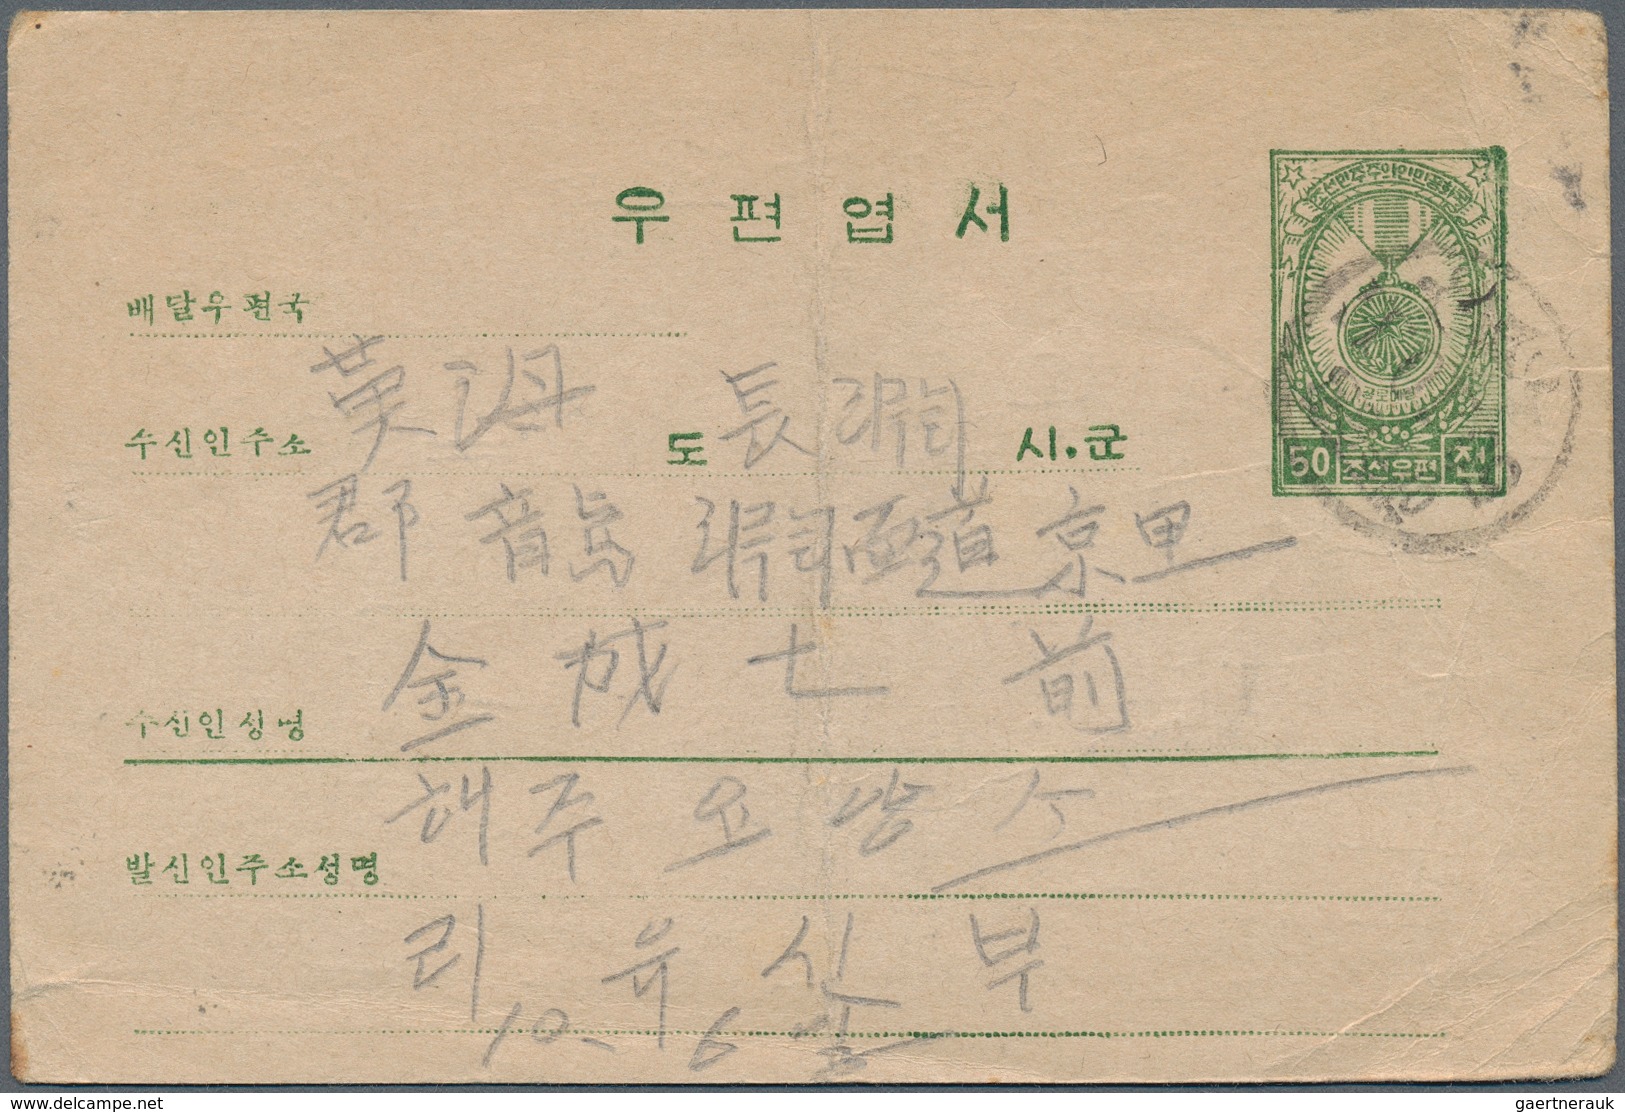 우편엽서
조선민주주의인민공화국
50 조선우편 전
배달우편국
수신인주소 黃海 도 長淵 시.군
郡 龍淵面 道京里
수신인성명 金成七 前
해주요양소
발신인주소성명
리유신 부
10. 6일
delcampe.net
gaertnerauk